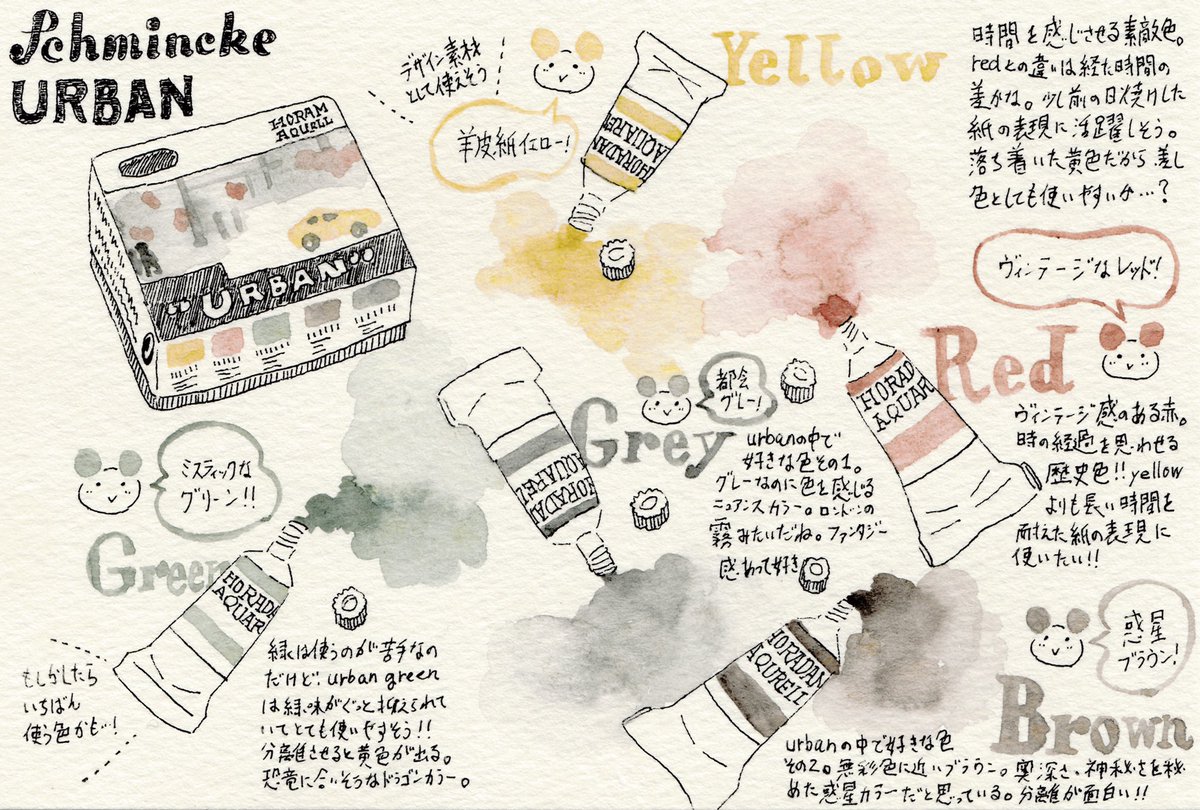 Schmincke
URBAN
HORAM
AQUELL
"URBAN"
デザイン素材
として使えそう
羊皮紙イエロー!
HORADAN
AQUAREL
Yellow
時間を感じさせる素敵色。
redとの違いは経た時間の
差かな。少し前の日焼けした
紙の表現に活躍しそう。
落ち着いた黄色だから差し
色としても使いやすいか…?
ヴィンテージなレッド!
Red
HORAD
AQUAR
ヴィンテージ感のある赤。
時の経過を思わせる
歴史色!!yellow
よりも長い時間を
耐えた紙の表現に
使いたい!!
都会
グレー!
Grey
HORADAN
AQUAREL
urbanの中で
好きな色その1。
グレーなのに色を感じる
ニュアンスカラー。ロンドンの
霧みたいだね。ファンタジー
感あって好き
ミスティックな
グリーン!!
Green
HORADA
AQUAR
もしかしたら
いちばん
使う色かも…!
緑は使うのが苦手なの
だけど、urban green
は緑味がぐっと抑えられて
いてとても使いやすそう!!
分離させると黄色が出る。
恐竜に合いそうなドラゴンカラー。
惑星
ブラウン!
Brown
HORADAN
AQURELL
urbanの中で好きな色
その2。無彩色に近いブラウン。奥深さ、神秘さを秘
めた惑星カラーだと思っている。分離が面白い!!